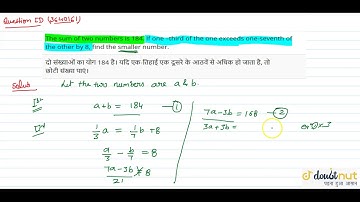 Question ID (3640161)
The sum of two numbers is 184. If one -third of the one exceeds one-seventh of
the other by 8, find the smaller number.
दो संख्याओं का योग 184 है। यदि एक तिहाई एक दूसरे के आठवें से अधिक हो जाता है, तो
छोटी संख्या पाएं।
Solution Let the two numbers are a & b.
Ist a+b = 184 —①
1/3 a = 1/7 b + 8
a/3 - b/7 = 8
7a-3b/21 = 8
7a-3b = 168 —②
3a+3b =
doubtnut